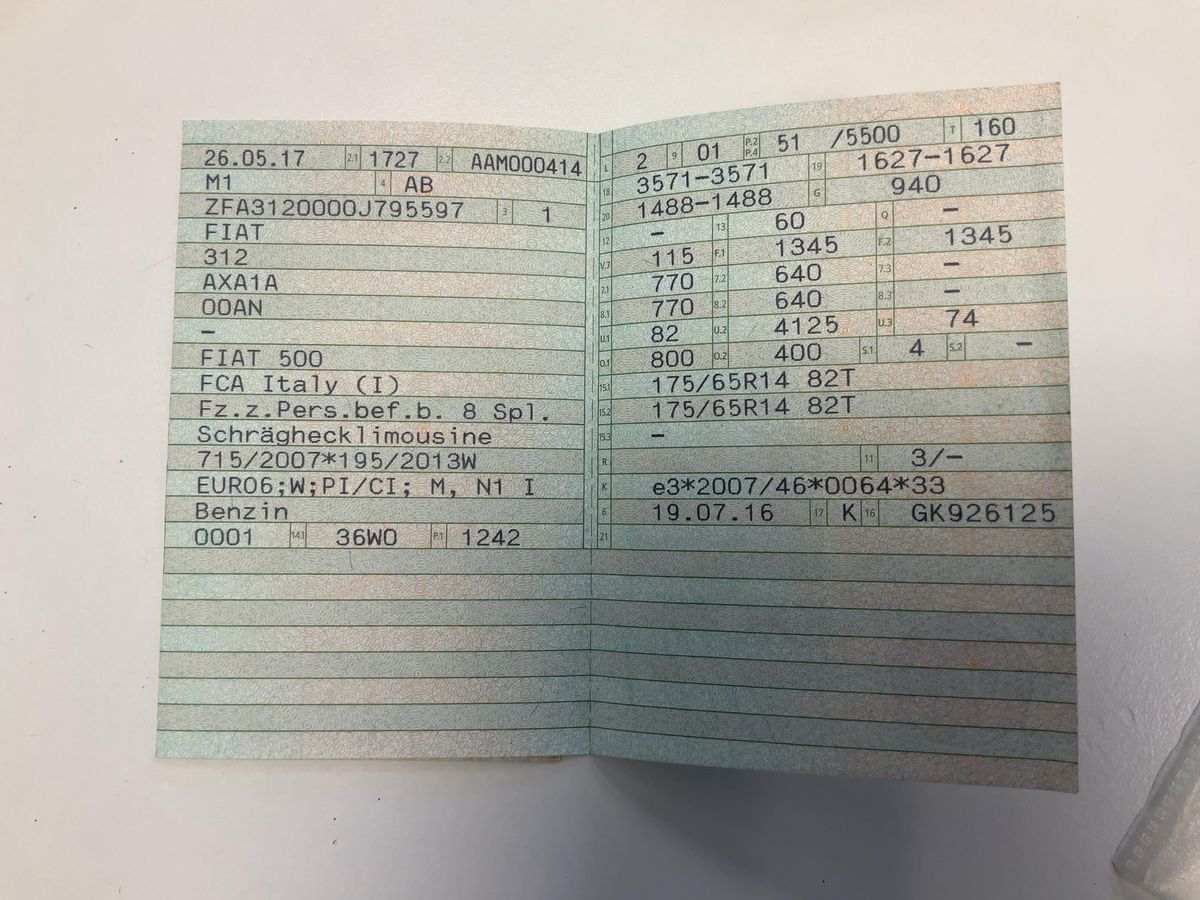 26.05.17 2.1 1727 2.2 AAM000414
M1 4 AB
ZFA3120000J795597 3 1
FIAT
312
AXA1A
00AN
–
FIAT 500
FCA Italy (I)
Fz.z.Pers.bef.b. 8 Spl.
Schräghecklimousine
715/2007*195/2013W
EURO6;W;PI/CI; M, N1 I
Benzin
0001 14.1 36W0 P.1 1242
L 2 9 01 P.2 P.4 51 /5500 T 160
18 3571–3571 19 1627–1627
20 1488–1488 G 940
12 – 13 60 Q –
V.7 115 F.1 1345 F.2 1345
7.1 770 7.2 640 7.3 –
8.1 770 8.2 640 8.3 –
U.1 82 U.2 4125 U.3 74
O.1 800 O.2 400 S.1 4 S.2 –
15.1 175/65R14 82T
15.2 175/65R14 82T
15.3 –
R 11 3/–
K e3*2007/46*0064*33
6 19.07.16 17 K 16 GK926125
21